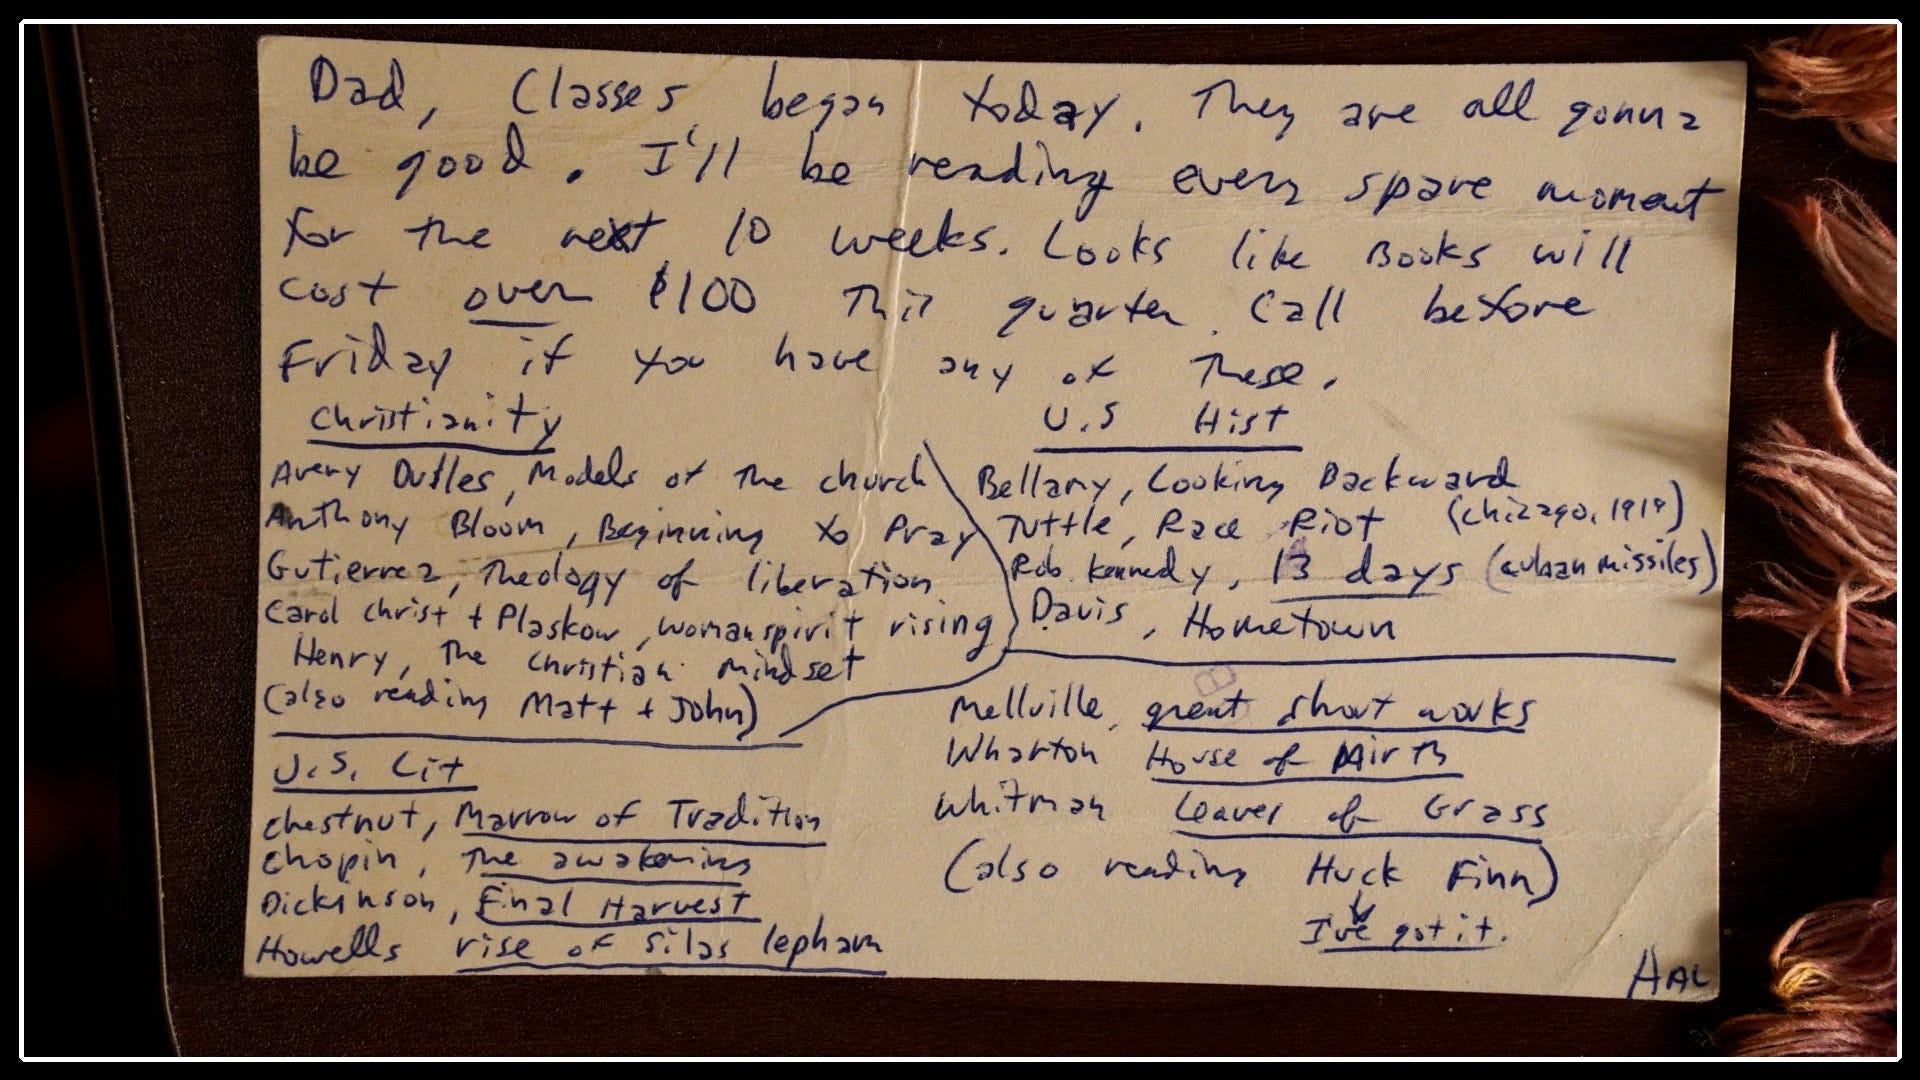 Dad, Classes began today. They are all gonna
be good. I'll be reading every spare moment
for the next 10 weeks. Looks like Books will
cost over $100 this quarter. Call before
Friday if you have any of these.
Christianity
Avery Dulles, Models of the church
Anthony Bloom, Beginning to Pray
Gutierrez, Theology of liberation
Carol Christ + Plaskow, womanspirit rising
Henry, The Christian mindset
(also reading Matt + John)
U.S Hist
Bellamy, Looking Backward
Tuttle, Race Riot (Chicago, 1919)
Rob. Kennedy, 13 days (cuban missiles)
Davis, Hometown
U.S. Lit
Chestnut, Marrow of Tradition
Chopin, The awakening
Dickinson, Final Harvest
Howells rise of silas lepham
Mellville, great short works
Wharton House of Mirth
Whitman Leaves of Grass
(also reading Huck Finn)
I've got it.
HAL